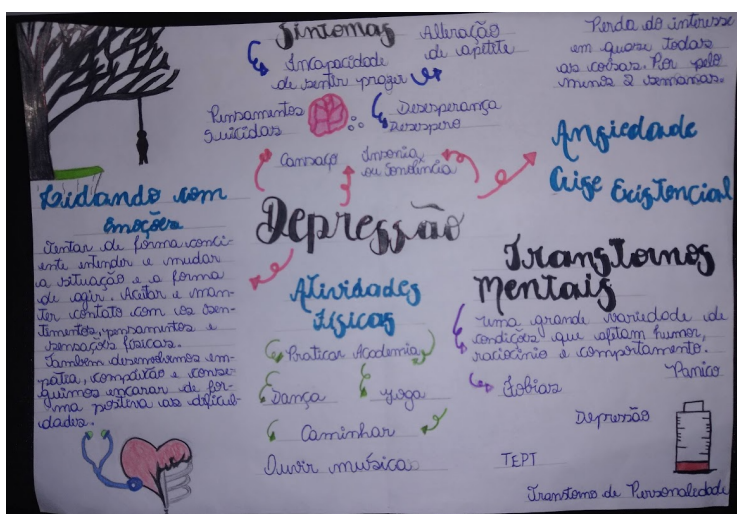 Sintomas
Incapacidade
de sentir prazer
Alteração
de apitite
Perda do interesse
em quase todas
as coisas. Por pelo
menos 2 semanas.
Pensamentos
Suicidas
Desesperança
Desespero
Cansaço
Insonia
ou Sonolência
Ansiedade
Crise Existencial
Lidando com
emoções
Tentar de forma conci-
ente entender e mudar
a situação e a forma
de agir. Aceitar e man-
ter contato com os sen-
timentos, pensamentos e
sensações físicas.
Também desenvolvemos em-
patia, compaixão e conse-
guimos encarar de for-
ma positiva as dificul-
dades.
Depressão
Atividades
Físicas
Praticar Academia
Dança
Yoga
Caminhar
Ouvir música
Transtornos
Mentais
uma grande variedade de
condições que afetam humor,
raciocínio e comportamento.
Panico
Fobias
Depressão
TEPT
Transtorno de Personaledade